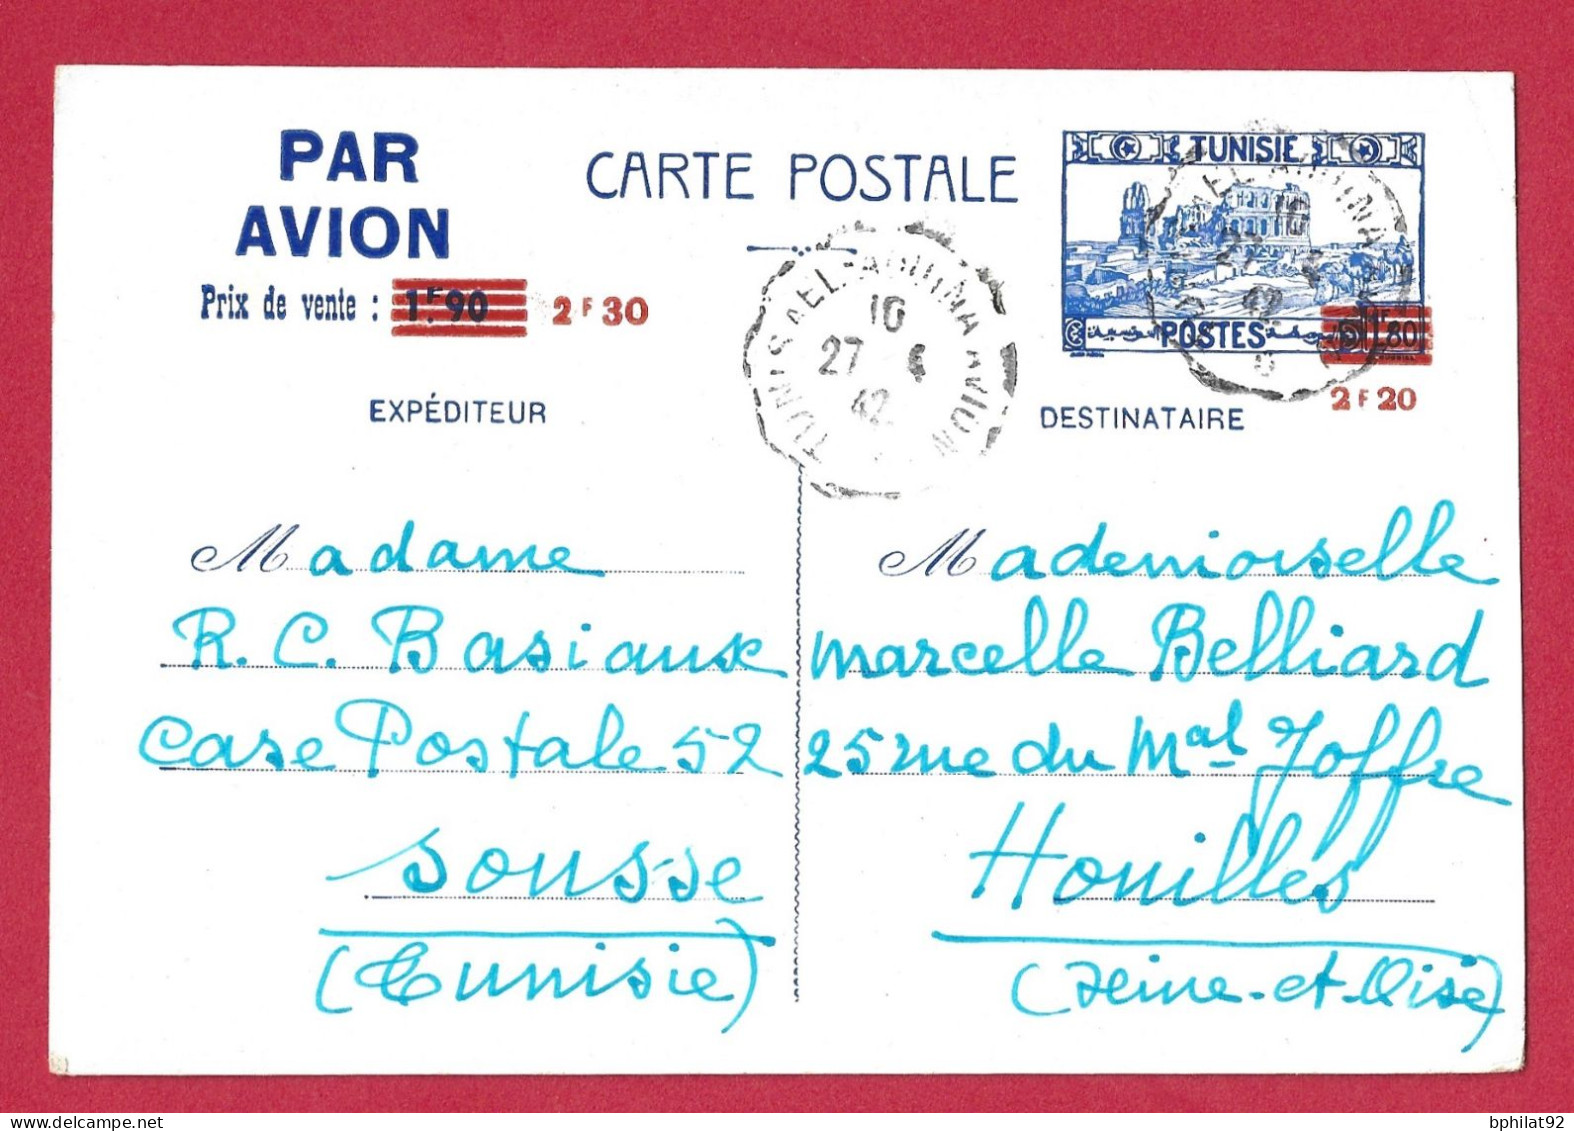 PAR
AVION
Prix de vente : 1F.90 2F30
CARTE POSTALE
TUNISIE
POSTES
1F80
2F20
TUNIS AEL-AOUINA AVION
16
27 4
42
EXPÉDITEUR
Madame
R. C. Basiaux
Case Postale 52
Sousse
(Tunisie)
DESTINATAIRE
Mademoiselle
Marcelle Belliard
25 rue du Mal Joffre
Houilles
(Seine-et-Oise)
bphilat92